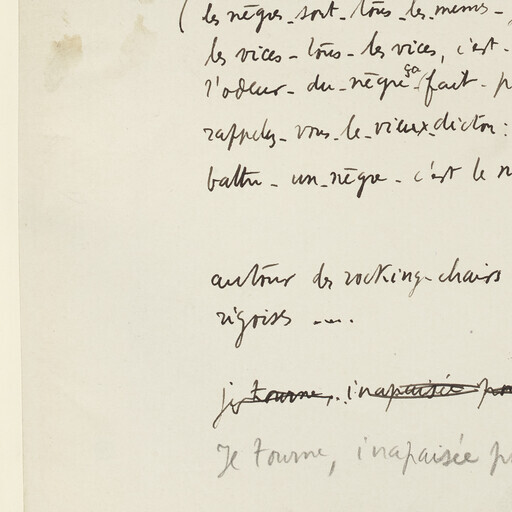 (les nègres-sont-tous-les-mêmes-,
les vices-tous-les vices, c'est-
l'odeur-du-nègre ça fait-p
rappelez-vous-le-vieux-dicton:
battre-un-nègre-c'est le n
autour des rocking-chairs
rigoises ....
je tourne, inapaisée po
Je tourne, inapaisée p